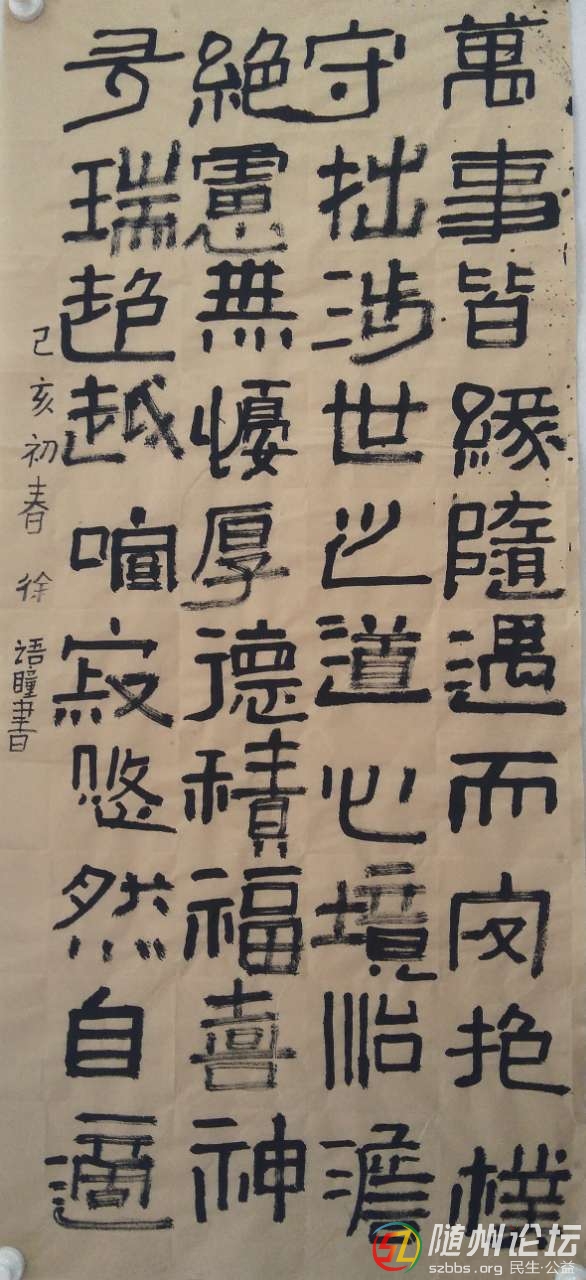 萬事皆緣隨遇而安抱樸
守拙涉世之道心境怡澹
絕慮無憂厚德積福喜神
多瑞超越喧寂悠然自適
己亥初春 徐語瞳書
随州论坛
szbbs.org 民生·公益